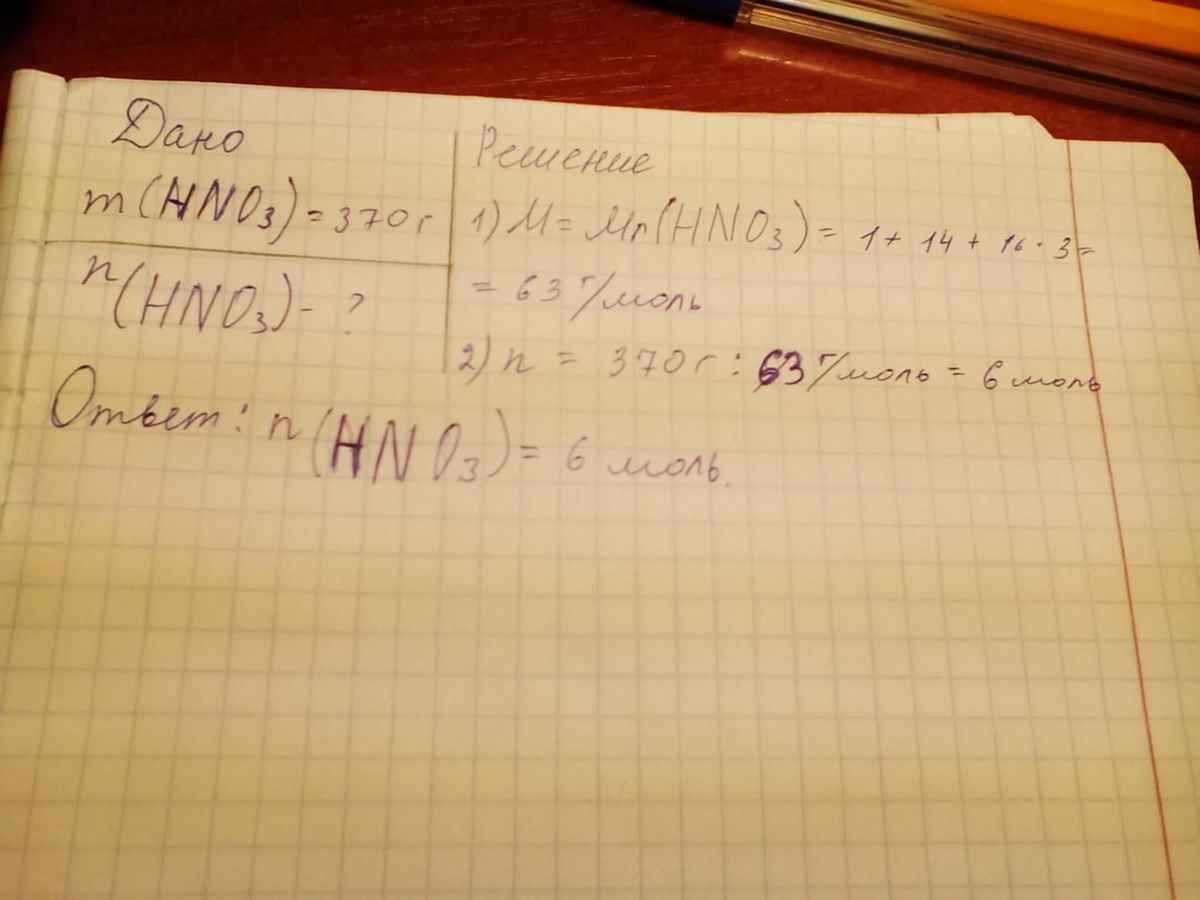 Дано
m(HNO₃)=370г
n(HNO₃)-?
Решение
1) M=Mr(HNO₃)= 1+ 14+ 16·3=
= 63 г/моль
2) n = 370г : 63 г/моль = 6 моль
Ответ: n(HNO₃)= 6 моль.